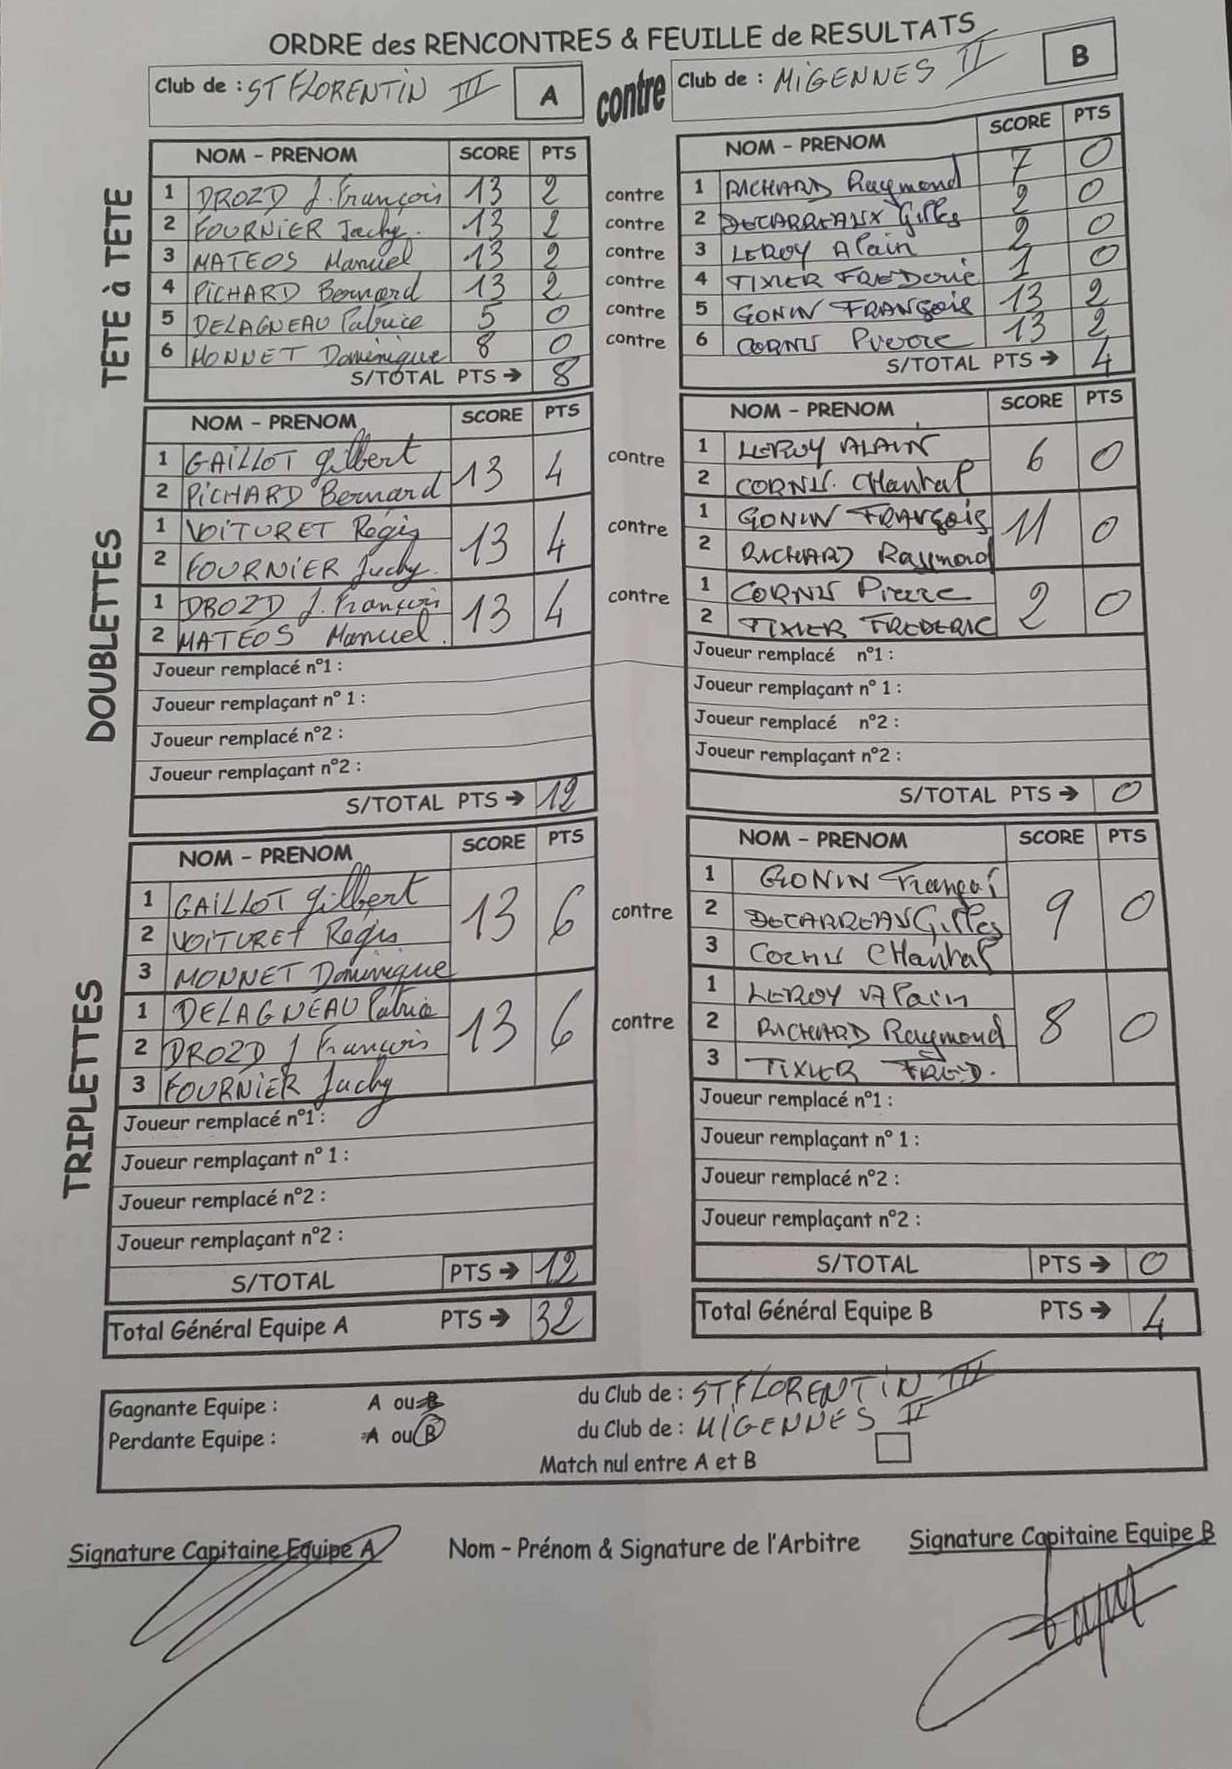 ORDRE des RENCONTRES & FEUILLE de RESULTATS
Club de : ST FLORENTIN III A contre Club de : MIGENNES II B
TÊTE à TÊTE
NOM - PRENOM SCORE PTS NOM - PRENOM SCORE PTS
1 DROZD J. François 13 2 contre 1 RICHARD Raymond 7 0
2 FOURNIER Jacky. 13 2 contre 2 DECARREAUX Gilles 2 0
3 MATEOS Manuel 13 2 contre 3 LEROY Alain 2 0
4 PICHARD Bernard 13 2 contre 4 TIXIER FREDERIC 1 0
5 DELAGNEAU Patrice 5 0 contre 5 GONIN FRANçois 13 2
6 MONNET Dominique 8 0 contre 6 CORNIS Pierre 13 2
S/TOTAL PTS → 8 S/TOTAL PTS → 4
DOUBLETTES
NOM - PRENOM SCORE PTS NOM - PRENOM SCORE PTS
1 GAILLOT Gilbert 13 4 contre 1 LEROY ALAIN 6 0
2 PICHARD Bernard 2 CORNIS. CHantal
1 VOITURET Régis 13 4 contre 1 GONIN FRANçois 11 0
2 FOURNIER Jacky. 2 RICHARD Raymond
1 DROZD J. François 13 4 contre 1 CORNIS Pierre 2 0
2 MATEOS Manuel. 2 TIXIER FREDERIC
Joueur remplacé n°1 : Joueur remplacé n°1 :
Joueur remplaçant n° 1 : Joueur remplaçant n° 1 :
Joueur remplacé n°2 : Joueur remplacé n°2 :
Joueur remplaçant n°2 : Joueur remplaçant n°2 :
S/TOTAL PTS → 12 S/TOTAL PTS → 0
TRIPLETTES
NOM - PRENOM SCORE PTS NOM - PRENOM SCORE PTS
1 GAILLOT Gilbert 13 6 contre 1 GONIN François 9 0
2 VOITURET Régis 2 DECARREAUX Gilles
3 MONNET Dominique 3 CORNIS CHantal
1 DELAGNEAU Patrice 13 6 contre 1 LEROY Alain 8 0
2 DROZD J François 2 RICHARD Raymond
3 FOURNIER Jacky 3 TIXIER FRED.
Joueur remplacé n°1 : Joueur remplacé n°1 :
Joueur remplaçant n° 1 : Joueur remplaçant n° 1 :
Joueur remplacé n°2 : Joueur remplacé n°2 :
Joueur remplaçant n°2 : Joueur remplaçant n°2 :
S/TOTAL PTS → 12 S/TOTAL PTS → 0
Total Général Equipe A PTS → 32 Total Général Equipe B PTS → 4
Gagnante Equipe : A ou B du Club de : ST FLORENTIN III
Perdante Equipe : A ou B du Club de : MIGENNES II
Match nul entre A et B
Signature Capitaine Equipe A Nom - Prénom & Signature de l'Arbitre Signature Capitaine Equipe B